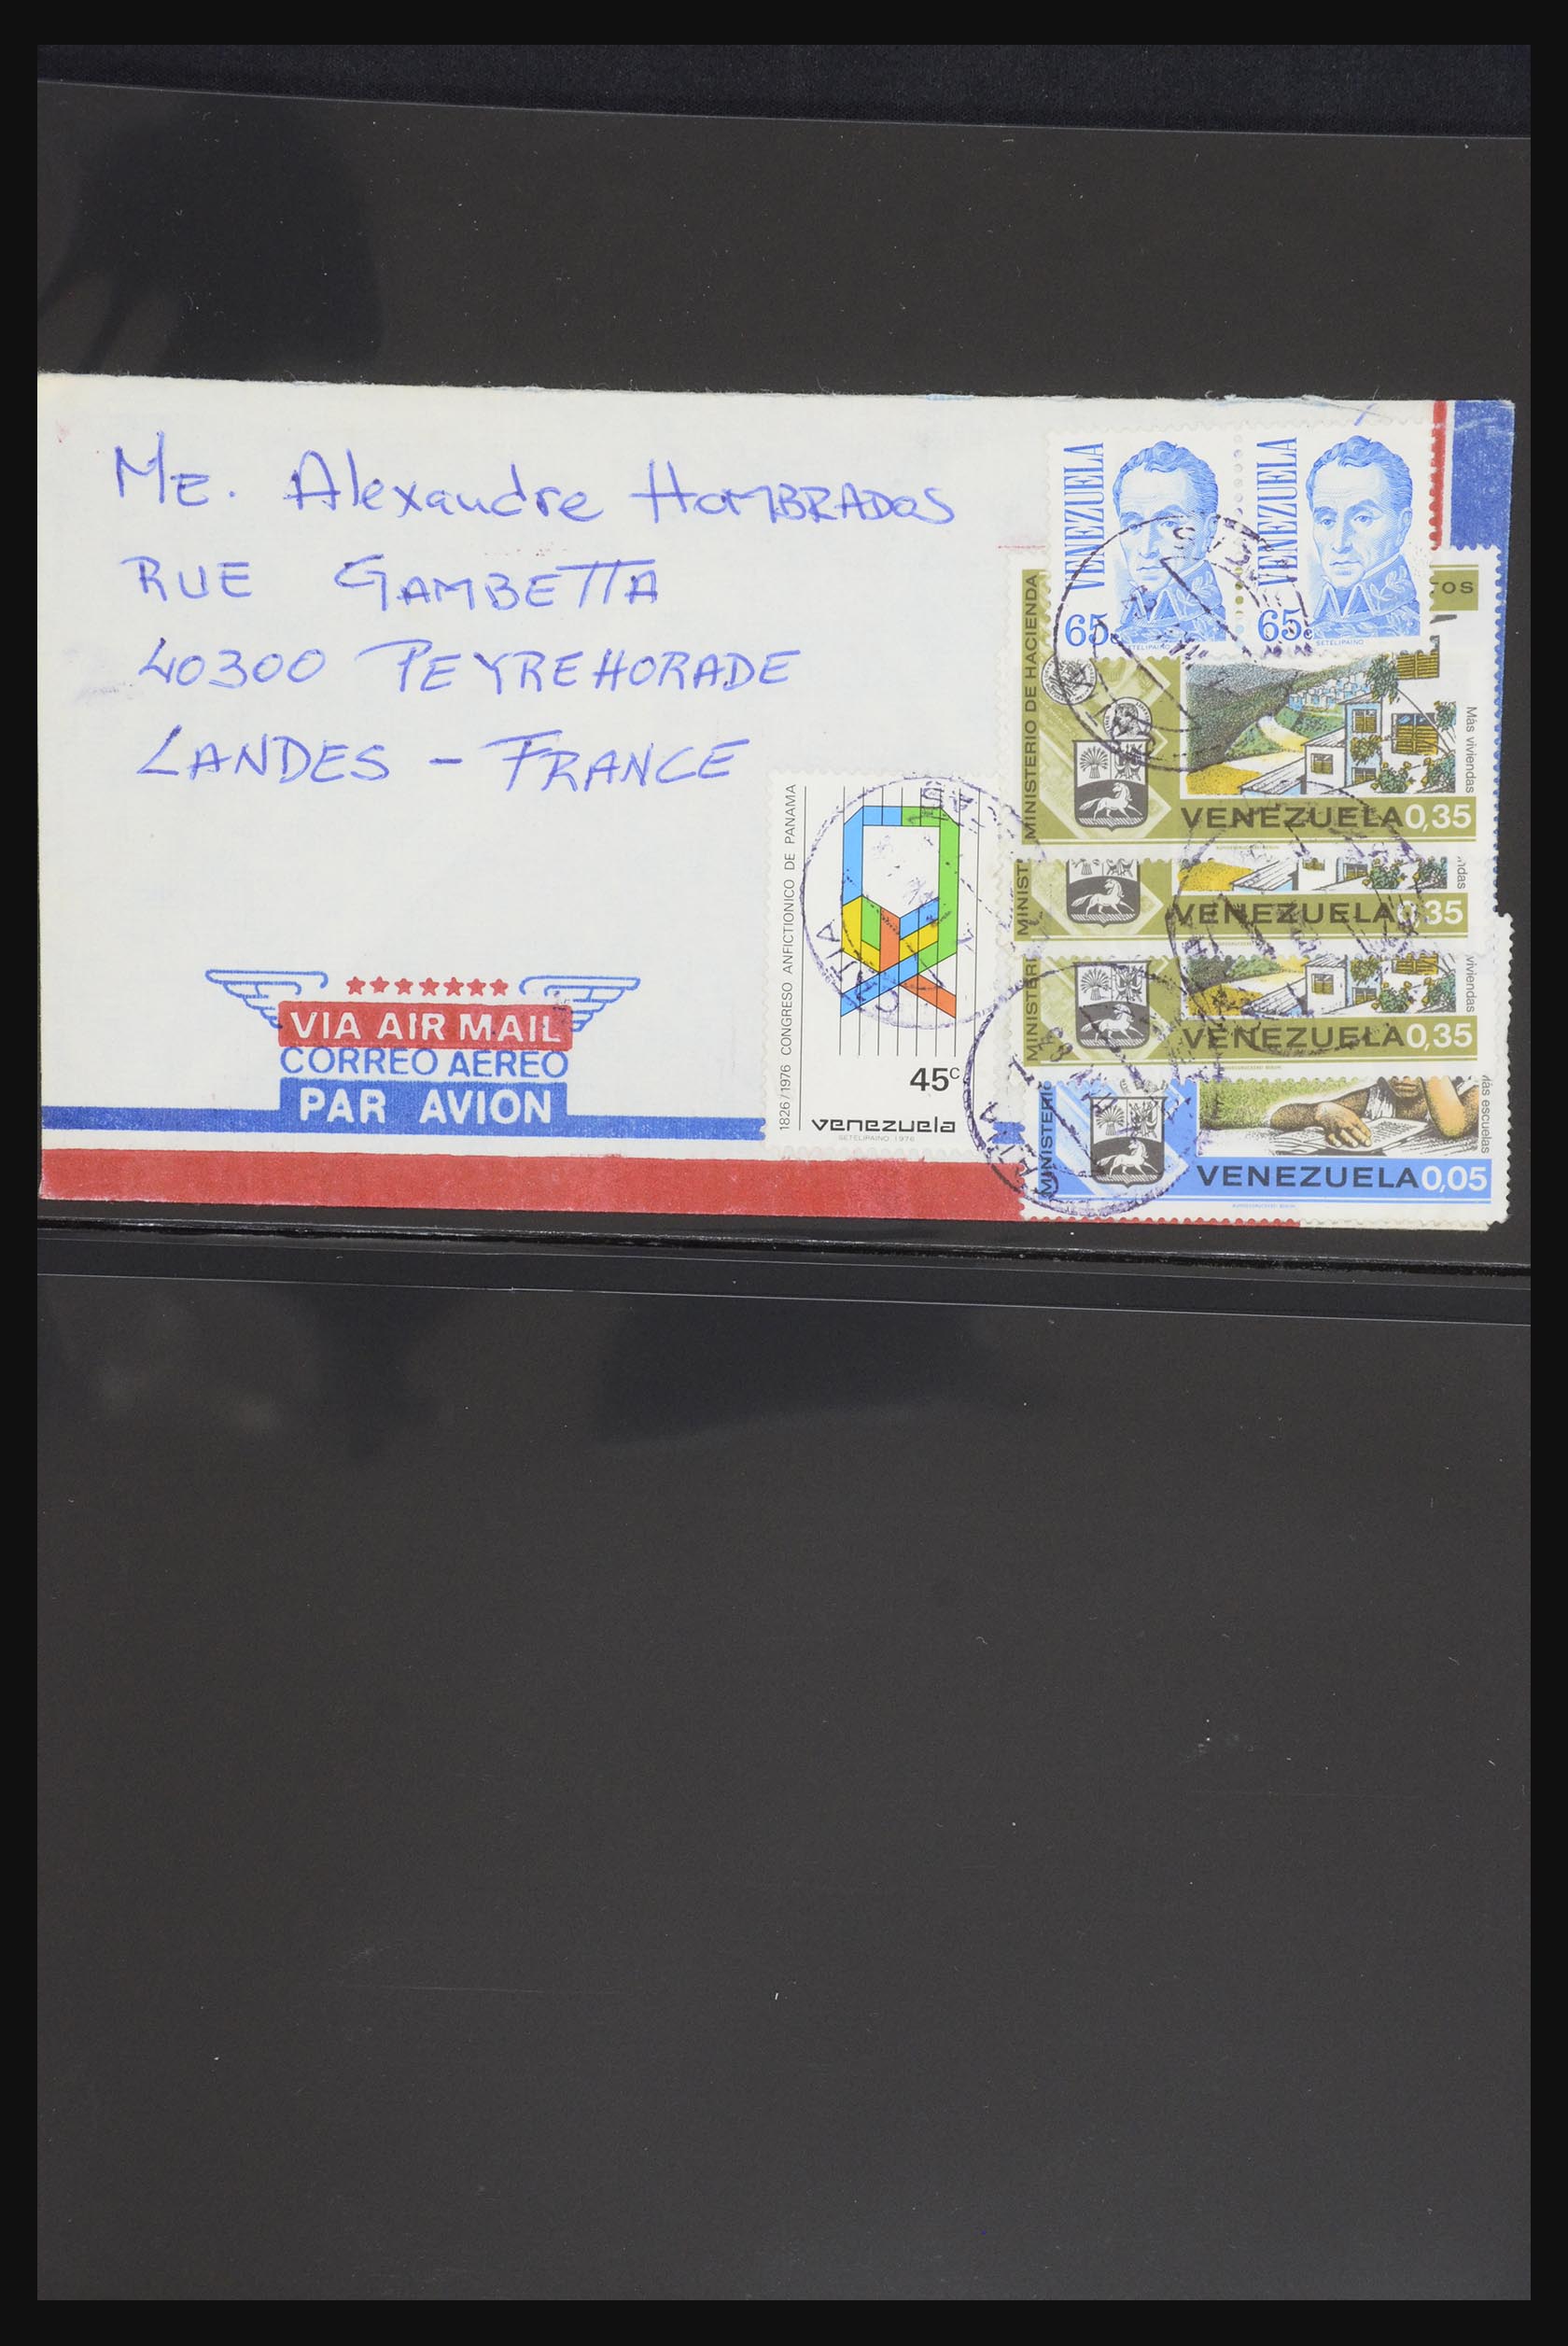 ME. Alexandre HOMBRADOS
RUE GAMBETTA
40300 PEYREHORADE
LANDES - FRANCE
VIA AIR MAIL
CORREO AEREO
PAR AVION
VENEZUELA
65c
SETELIPAINO
VENEZUELA
65c
SETELIPAINO
TOS
MINISTERIO DE HACIENDA
Más viviendas
VENEZUELA 0,35
MINIST
ndas
VENEZUELA 0,35
MINISTERI
viviendas
VENEZUELA 0,35
MINISTERIO
ás escuelas
VENEZUELA 0,05
1826/1976 CONGRESO ANFICTIONICO DE PANAMA
45c
venezuela
SETELIPAINO 1976
CATIA